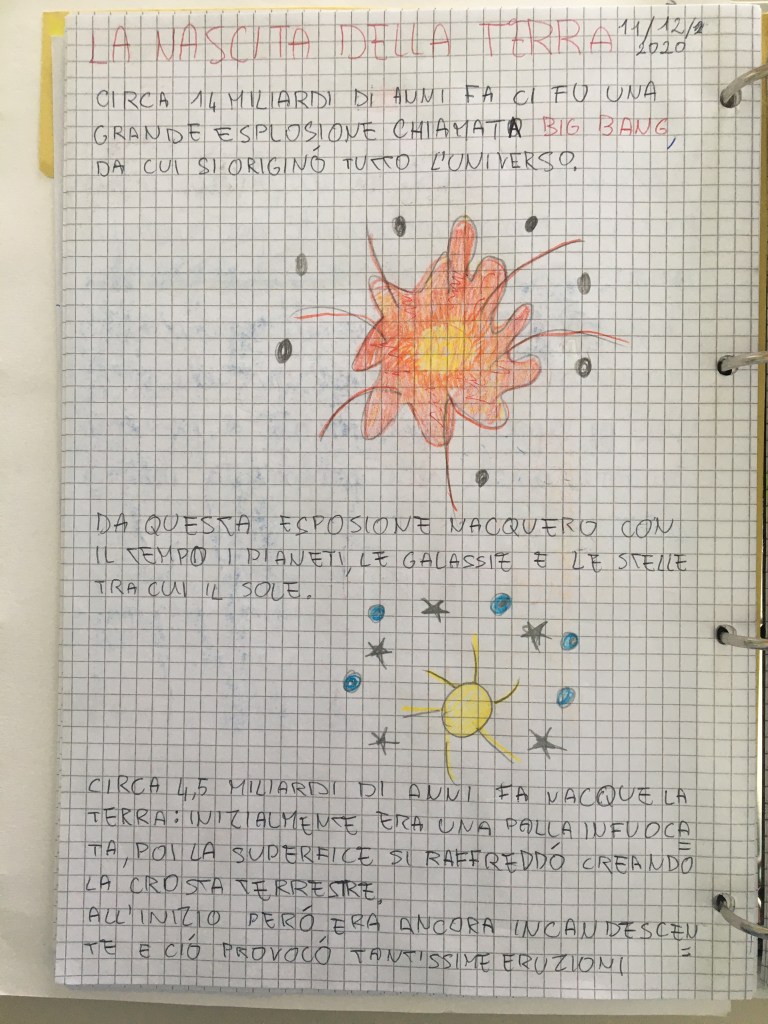 LA NASCITA DELLA TERRA 11/12/2
2020
CIRCA 14 MILIARDI DI ANNI FA CI FU UNA
GRANDE ESPLOSIONE CHIAMATA BIG BANG,
DA CUI SI ORIGINÓ TUTTO L'UNIVERSO.
DA QUESTA ESPOSIONE NACQUERO CON
IL TEMPO I PIANETI, LE GALASSIE E LE STELLE
TRA CUI IL SOLE.
CIRCA 4,5 MILIARDI DI ANNI FA NACQUE LA
TERRA: INIZIALMENTE ERA UNA PALLA INFUOCA=
TA, POI LA SUPERFICE SI RAFFREDDÓ CREANDO
LA CROSTA TERRESTRE.
ALL'INIZIO PERÓ ERA ANCORA INCANDESCEN=
TE E CIÓ PROVOCÓ TANTISSIME ERUZIONI